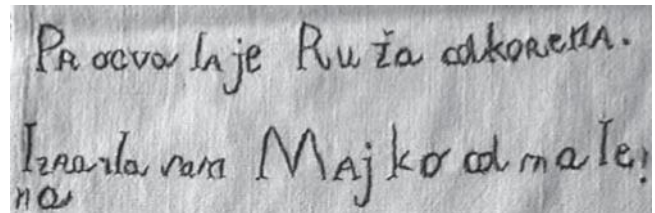 PRocvala je Ruža odkoRENA.
IzRasla sam MAjko od male:
na